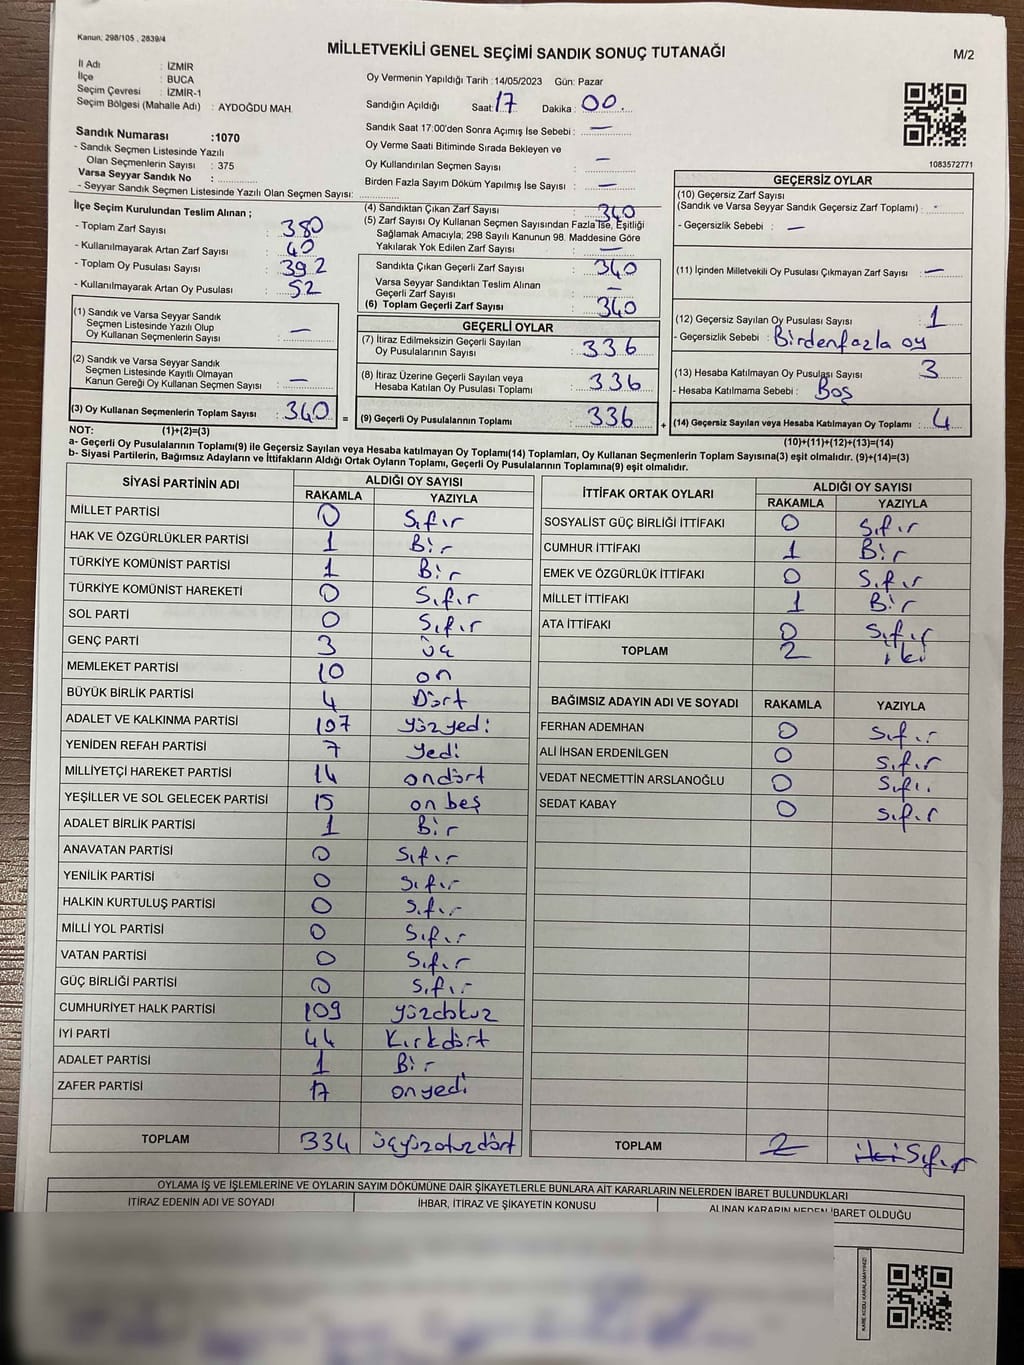 Kanun: 298/105 , 2839/4
MİLLETVEKİLİ GENEL SEÇİMİ SANDIK SONUÇ TUTANAĞI
M/2
İl Adı : İZMİR
İlçe : BUCA
Seçim Çevresi : İZMİR-1
Seçim Bölgesi (Mahalle Adı) : AYDOĞDU MAH.
Sandık Numarası :1070
- Sandık Seçmen Listesinde Yazılı
Olan Seçmenlerin Sayısı : 375
Varsa Seyyar Sandık No :
- Seyyar Sandık Seçmen Listesinde Yazılı Olan Seçmen Sayısı:
Oy Vermenin Yapıldığı Tarih :14/05/2023 Gün: Pazar
Sandığın Açıldığı Saat: 17 Dakika : 00.
Sandık Saat 17:00'den Sonra Açımış İse Sebebi : —
Oy Verme Saati Bitiminde Sırada Bekleyen ve
Oy Kullandırılan Seçmen Sayısı : —
Birden Fazla Sayım Döküm Yapılmış İse Sayısı : —
1083572771
İlçe Seçim Kurulundan Teslim Alınan ;
- Toplam Zarf Sayısı : 380
- Kullanılmayarak Artan Zarf Sayısı : 40
- Toplam Oy Pusulası Sayısı : 392
- Kullanılmayarak Artan Oy Pusulası : 52
(1) Sandık ve Varsa Seyyar Sandık
Seçmen Listesinde Yazılı Olup
Oy Kullanan Seçmenlerin Sayısı : —
(2) Sandık ve Varsa Seyyar Sandık
Seçmen Listesinde Kayıtlı Olmayan
Kanun Gereği Oy Kullanan Seçmen Sayısı : —
(3) Oy Kullanan Seçmenlerin Toplam Sayısı : 340 =
(4) Sandıktan Çıkan Zarf Sayısı : 340
(5) Zarf Sayısı Oy Kullanan Seçmen Sayısından Fazla İse, Eşitliği
Sağlamak Amacıyla; 298 Sayılı Kanunun 98. Maddesine Göre
Yakılarak Yok Edilen Zarf Sayısı : —
Sandıkta Çıkan Geçerli Zarf Sayısı : 340
Varsa Seyyar Sandıktan Teslim Alınan
Geçerli Zarf Sayısı : —
(6) Toplam Geçerli Zarf Sayısı : 340
GEÇERLİ OYLAR
(7) İtiraz Edilmeksizin Geçerli Sayılan
Oy Pusulalarının Sayısı : 336
(8) İtiraz Üzerine Geçerli Sayılan veya
Hesaba Katılan Oy Pusulası Toplamı : 336
(9) Geçerli Oy Pusulalarının Toplamı : 336 +
GEÇERSİZ OYLAR
(10) Geçersiz Zarf Sayısı
(Sandık ve Varsa Seyyar Sandık Geçersiz Zarf Toplamı) : -
- Geçersizlik Sebebi : —
(11) İçinden Milletvekili Oy Pusulası Çıkmayan Zarf Sayısı : —
(12) Geçersiz Sayılan Oy Pusulası Sayısı : 1
- Geçersizlik Sebebi : Birdenfazla oy
(13) Hesaba Katılmayan Oy Pusulası Sayısı : 3
- Hesaba Katılmama Sebebi : Boş
(14) Geçersiz Sayılan veya Hesaba Katılmayan Oy Toplamı : 4
NOT: (1)+(2)=(3)
(10)+(11)+(12)+(13)=(14)
a- Geçerli Oy Pusulalarının Toplamı(9) ile Geçersiz Sayılan veya Hesaba katılmayan Oy Toplamı(14) Toplamları, Oy Kullanan Seçmenlerin Toplam Sayısına(3) eşit olmalıdır. (9)+(14)=(3)
b- Siyasi Partilerin, Bağımsız Adayların ve İttifakların Aldığı Ortak Oyların Toplamı, Geçerli Oy Pusulalarının Toplamına(9) eşit olmalıdır.
SİYASİ PARTİNİN ADI ALDIĞI OY SAYISI
RAKAMLA YAZIYLA
MİLLET PARTİSİ 0 Sıfır
HAK VE ÖZGÜRLÜKLER PARTİSİ 1 Bir
TÜRKİYE KOMÜNİST PARTİSİ 1 Bir
TÜRKİYE KOMÜNİST HAREKETİ 0 Sıfır
SOL PARTİ 0 Sıfır
GENÇ PARTİ 3 üç
MEMLEKET PARTİSİ 10 on
BÜYÜK BİRLİK PARTİSİ 4 Dört
ADALET VE KALKINMA PARTİSİ 107 yüzyedi
YENİDEN REFAH PARTİSİ 7 yedi
MİLLİYETÇİ HAREKET PARTİSİ 14 ondört
YEŞİLLER VE SOL GELECEK PARTİSİ 15 on beş
ADALET BİRLİK PARTİSİ 1 Bir
ANAVATAN PARTİSİ 0 Sıfır
YENİLİK PARTİSİ 0 Sıfır
HALKIN KURTULUŞ PARTİSİ 0 Sıfır
MİLLİ YOL PARTİSİ 0 Sıfır
VATAN PARTİSİ 0 Sıfır
GÜÇ BİRLİĞİ PARTİSİ 0 Sıfır
CUMHURİYET HALK PARTİSİ 109 yüzdokuz
İYİ PARTİ 44 Kırkdört
ADALET PARTİSİ 1 Bir
ZAFER PARTİSİ 17 onyedi
TOPLAM 334 üçyüzotuzdört
İTTİFAK ORTAK OYLARI ALDIĞI OY SAYISI
RAKAMLA YAZIYLA
SOSYALİST GÜÇ BİRLİĞİ İTTİFAKI 0 Sıfır
CUMHUR İTTİFAKI 1 Bir
EMEK VE ÖZGÜRLÜK İTTİFAKI 0 Sıfır
MİLLET İTTİFAKI 1 Bir
ATA İTTİFAKI 0 Sıfır
TOPLAM 2 iki
BAĞIMSIZ ADAYIN ADI VE SOYADI RAKAMLA YAZIYLA
FERHAN ADEMHAN 0 Sıfır
ALİ İHSAN ERDENİLGEN 0 Sıfır
VEDAT NECMETTİN ARSLANOĞLU 0 Sıfır
SEDAT KABAY 0 Sıfır
TOPLAM 2 iki Sıfır
OYLAMA İŞ VE İŞLEMLERİNE VE OYLARIN SAYIM DÖKÜMÜNE DAİR ŞİKAYETLERLE BUNLARA AİT KARARLARIN NELERDEN İBARET BULUNDUKLARI
İTİRAZ EDENİN ADI VE SOYADI İHBAR, İTİRAZ VE ŞİKAYETİN KONUSU ALINAN KARARIN NEDEN İBARET OLDUĞU
KARE KODU KARALAMAYINIZ!